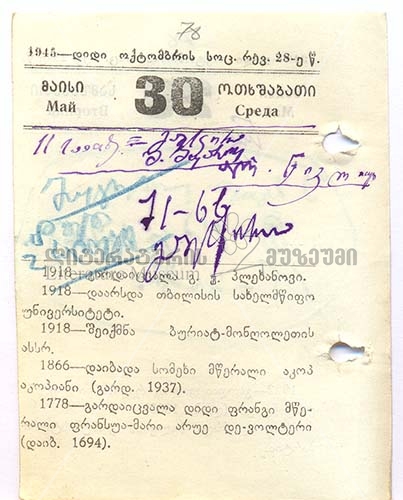 78
1945—დიდი ოქტომბრის სოც. რევ. 28-ე წ.
მაისი 30 ოთხშაბათი
Май Среда
11 საათ.
71-66
ლიტერატურის მუზეუმი
1918—გარდაიცვალა გ. ვ. პლეხანოვი.
1918—დაარსდა თბილისის სახელმწიფო
უნივერსიტეტი.
1918—შეიქმნა ბურიატ-მონღოლეთის
ასსრ.
1866—დაიბადა სომეხი მწერალი აკოპ
აკოპიანი (გარდ. 1937).
1778—გარდაიცვალა დიდი ფრანგი მწე-
რალი ფრანსუა-მარი არუე დე-ვოლტერი
(დაიბ. 1694).